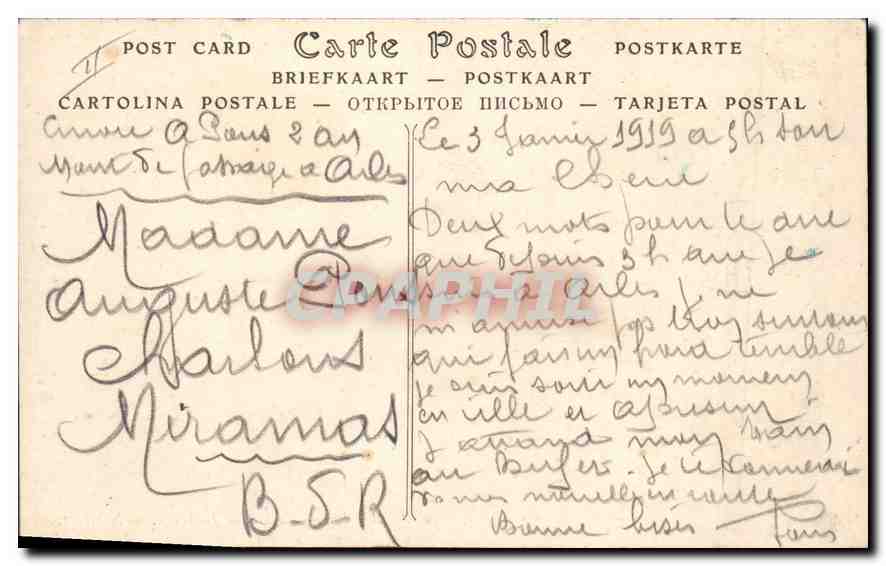 II
POST CARD Carte Postale POSTKARTE
BRIEFKAART — POSTKAART
CARTOLINA POSTALE — ОТКРЫТОЕ ПИСЬМО — TARJETA POSTAL
A Pons 2
de a Arles
Madame
Auguste Pons
Charlons
Miramas
B-d-R
Le 3 Janvier 1919 a 5h soir
ma Cherie
Deux mots pour te dire
que depuis 3h que je
suis à Arles j ne
m amuse pas trop surtout
qui fais un froid terrible
je suis sorti un moment
en ville et a present
j attand mon train
au Bufet. Je te donnerai
de mes nouvelles en route
Bonne bises Pons
CPAPHIL